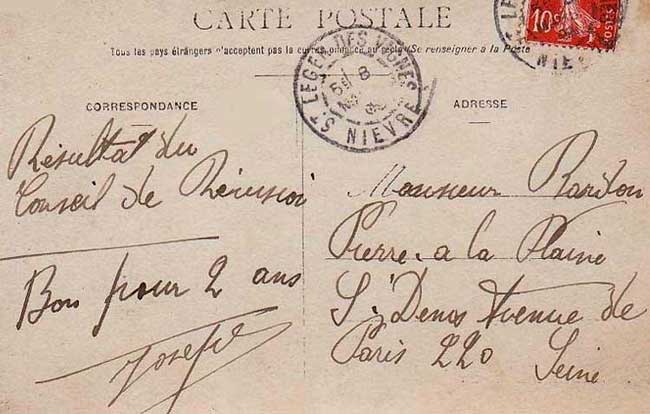 CARTE POSTALE
Tous les pays étrangers n'acceptent pas la correspondance au recto (Se renseigner à la Poste
CORRESPONDANCE
ADRESSE
10
POSTES
ST LEGER DES VIGNES
8
NIEVRE
LE
NIE
Résultat du
Conseil de Révision
Bon pour 2 ans
Joseph
Monsieur
Pierre a la Plaine
St Denis Avenue de
Paris 220 Seine